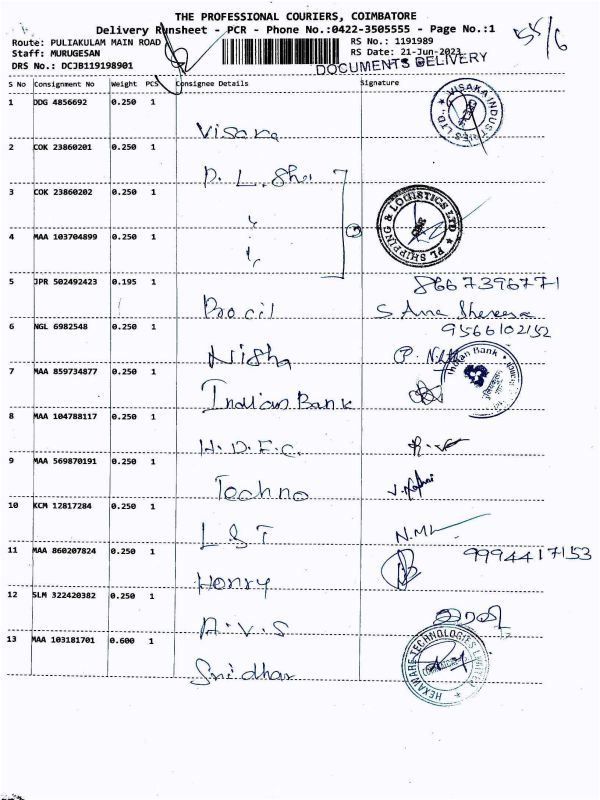 THE PROFESSIONAL COURIERS, COIMBATORE
Delivery Runsheet - PCR - Phone No.:0422-3505555 - Page No.:1
55/6
Route: PULIAKULAM MAIN ROAD RS No.: 1191989
Staff: MURUGESAN RS Date: 21-Jun-2023
DRS No.: DCJB119198901 DOCUMENTS DELIVERY
S No Consignment No Weight PCS Consignee Details Signature
1 DDG 4856692 0.250 1 Visaka VISAKA INDUSTRIES LTD.,
2 COK 23860201 0.250 1 P. L. Shi
3 COK 23860202 0.250 1 PL SHIPPING & LOGISTICS LTD
4 MAA 103704899 0.250 1
5 JPR 502492423 0.195 1 Procil 8667396771
S Ama Shereesa
6 NGL 6982548 0.250 1 Nisha 9566102152
7 MAA 859734877 0.250 1 Indian Bank Indian Bank
8 MAA 104788117 0.250 1 H.D.F.C.
9 MAA 569870191 0.250 1 Techno
10 KCM 12817284 0.250 1 L S T
11 MAA 860207824 0.250 1 Honry 9994417153
12 SLM 322420382 0.250 1 A.V.S
13 MAA 103181701 0.600 1 Sridhar HEXAWARE TECHNOLOGIES LIMITED